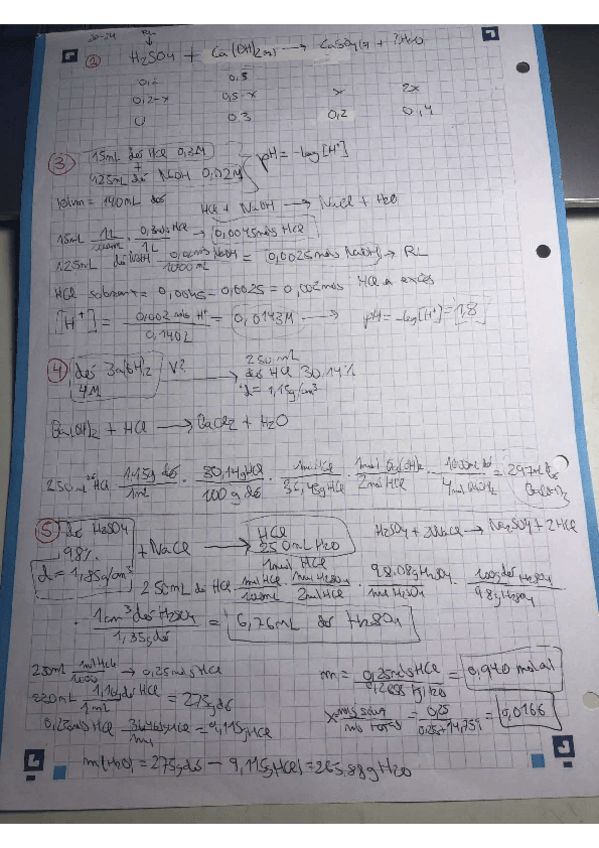 ② H₂SO₄ + Ca(OH)₂ → CaSO₄ + 2H₂O
0,2 0,5
0,2-x 0,5-x x 2x
0 0.3 0,2 0,4
③ 15mL dos HCl 0,3M pH = -log[H⁺]
+
125mL NaOH 0,02M
140mL dos
HCl + NaOH → NaCl + H₂O
15mL · 1L/1000mL · 0,3mols HCl/1L → 0,0045mols HCl
125mL dos NaOH · 0,02mols NaOH/1000mL = 0,0025mols NaOH → RL
HCl sobrant = 0,0045 - 0,0025 = 0,002mols HCl a excés
[H⁺] = 0,002 mols H⁺/0,140L = 0,0143M → pH = -log[H⁺] = 1,8
④ dos Ba(OH)₂ V? 250mL
4M → dos HCl 30.14%
d = 1,15g/cm³
Ba(OH)₂ + HCl → BaCl₂ + H₂O
250mL HCl · 1,15g dos/1mL · 30,14g HCl/100g dos · 1mol HCl/36,45g HCl · 1mol Ba(OH)₂/2mol HCl · 1000mL dos/4mol = 297mL Ba(OH)₂
⑤ dos H₂SO₄ 98% + NaCl → HCl 250mL H₂O H₂SO₄ + 2NaCl → Na₂SO₄ + 2HCl
1mol HCl
d = 1,85g/cm³
250mL de HCl · mol HCl/1000mL · mol H₂SO₄/2mol HCl · 98.08g H₂SO₄/mol H₂SO₄ · 100g dos H₂SO₄/98g H₂SO₄
· 1cm³ dos H₂SO₄/1,85g dos = 6,76mL dos H₂SO₄
250mL · 1mol HCl/1000 → 0,25mols HCl m = 0,25mols HCl/kg H₂O = 0,940 molal
250mL · 1,10g dos HCl/1mL = 275g dos
0,25mols HCl · 36,46g HCl/mol = 9,115g HCl x = mols solut/mols totals = 0,25/0,25+14,759 = 0,0166
m(H₂O) = 275g dos - 9,115g HCl = 265,88g H₂O